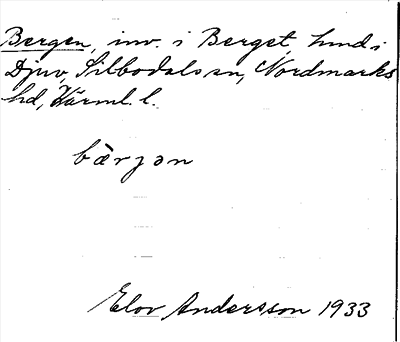 Bergen, inv. i Berget, hmd i
Djuv, Silbodals sn, Nordmarks
hd, Värml. l.
bærjən
Elov Andersson 1933